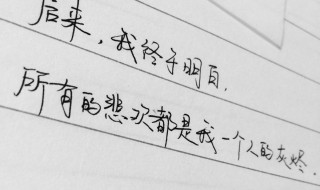 后来，我终于明白，
所有的悲欢都是我一个人的灰烬．